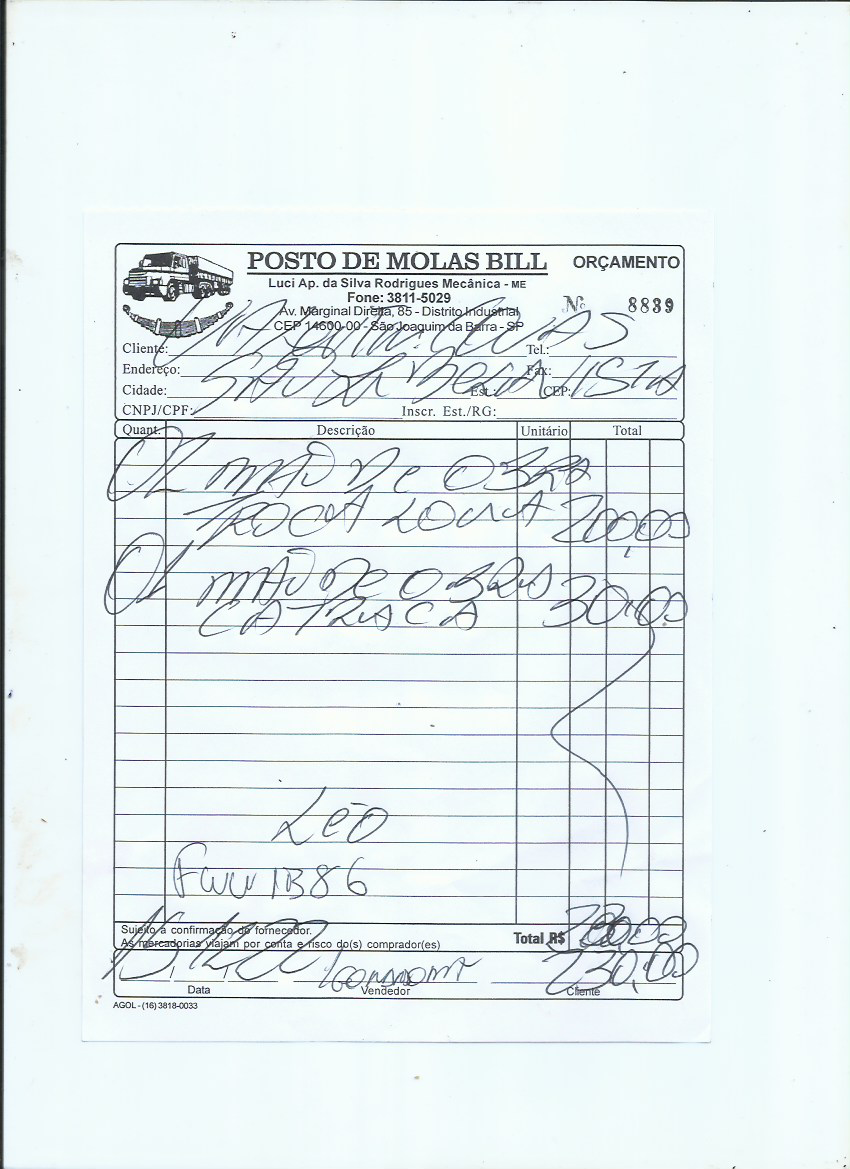 POSTO DE MOLAS BILL
ORÇAMENTO
Luci Ap. da Silva Rodrigues Mecânica - ME
Fone: 3811-5029
Av. Marginal Direita, 85 - Distrito Industrial
Nº 8839
CEP 14600-00 - São Joaquim da Barra - SP
Cliente: Tel.:
Endereço: Fax:
Cidade: Est.: CEP:
CNPJ/CPF: Inscr. Est./RG:
Quant. Descrição Unitário Total
01 MÃO De OBRA
TROCA LONA 200,00
01 MÃO De OBRA 30,00
CATRACA
Leo
Sujeito à confirmação do fornecedor.
As mercadorias viajam por conta e risco do(s) comprador(es)
Total R$
230,00
Data Vendedor Cliente
AGOL - (16) 3818-0033